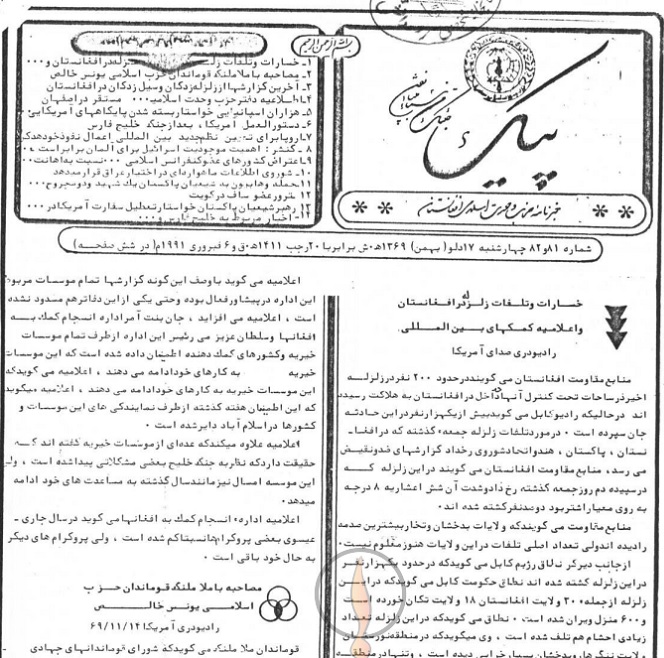 بسم الله الرحمن الرحیم
۱ـ خسارات وتلفات زلزله درافغانستان و۰۰۰
۲ـ مصاحبه با ملا ملنگ قوماندان حزب اسلامی یونس خالص
۳ـ آخرین گزارشها از زلزله زدگان وسیل زدگان در افغانستان
۴ـ اطلاعیه دفتر حزب وحدت اسلامی۰۰۰ مستقر در اصفهان
۵ـ هزاران اسپانیوایی خواستار بسته شدن پایگاههای آمریکایی۰
۶ـ دستورالعمل آمریکا، بعد از جنگ خلیج فارس
۷ـ اروپا برای تعیین نظم جدید بین المللی اعمال نفوذ خودهد۰
۸ـ گنشر: اهمیت موجودیت اسرائیل برای المان برابر است ۰۰
۹ـ اعتراض کشورهای عضو کنفرانس اسلامی ۰۰۰ نسبت به اهانت۰۰
۱۰ـ شوروی اطلاعات ماهواره‌ای در اختیار عراق قرار میدهد
۱۱ـ حمله وهابیون به شیعیان پاکستان یک شهید و دو مجروح۰۰۰
۱۲ـ ترور عضو ساف در کویت
۱۳ـ رهبر شیعیان پاکستان خواستار تعطیل سفارت آمریکا در۰۰۰
۱۴ـ اخبار مربوط به خلیج فارس و۰۰۰
پیک
خبرنامه حزب وحدت اسلامی افغانستان
شماره ۸۱ و ۸۲ چهارشنبه ۱۷ دلو (بهمن) ۱۳۶۹ ه۰ش برابر با ۲۰ رجب ۱۴۱۱ ه۰ق و ۶ فبروری ۱۹۹۱ م (در شش صفحه)
خسارات وتلفات زلزله در افغانستان
واعلامیه کمکهای بین المللی
رادیو صدای آمریکا
منابع مقاومت افغانستان می گویند در حدود ۲۰۰ نفر در زلزله
اخیر در ساحات تحت کنترل آنها در داخل افغانستان به هلاکت رسیده
اند در حالیکه رادیو کابل می گوید بیش از یکهزار نفر در این حادثه
جان سپرده است ۰ در مورد تلفات زلزله جمعه گذشته که در افغا ـ
نستان ، پاکستان ، هند و اتحاد شوروی رخداد گزارشهای ضد و نقیض
می رسد، منابع مقاومت افغانستان می گویند در این زلزله که
در سپیده دم روز جمعه گذشته رخ داد و شدت آن شش اعشاریه ۸ درجه
به روی معیار اشتر بود دو صد نفر کشته شده اند۰
منابع مقاومت می گویند که ولایات بدخشان و تخار بیشترین صدمه
را دیده اند ولی تعداد اصلی تلفات در این ولایات هنوز معلوم نیست۰
از جانب دیگر نطاق رژیم کابل می گوید که در حدود یکهزار نفر
در این زلزله کشته شده اند نطاق حکومت کابل می گوید که در این
زلزله از جمله ۳۰ ولایت افغانستان ۱۸ ولایت تکان خورده است
و ۶۰۰ منزل ویران شده است ۰ نطاق می گوید که در این زلزله تعداد
زیادی احشام هم تلف شده است ، وی میگوید که در منطقه نورستان
ولایت ننگرهار و بدخشان بسیار خرابی دیده است ، و تنها در منطقه
اعلامیه می گوید با وصف این گونه گزارشها تمام موسسات مربوط
این اداره در پیشاور فعال بوده و حتی یکی از این دفاتر هم مسدود نشده
است ، اعلامیه می افزاید ، جان بنت آمر اداره انسجام کمک به
افغانها و سلطان عزیز می رئیس این اداره از طرف تمام موسسات
خیریه و کشورهای کمک دهنده اطمینان داده شده است که این موسسات
خیریه به کارهای خود ادامه می دهند ، اعلامیه می گوید که
این موسسات خیریه به کارهای خود ادامه می دهند ، اعلامیه میگوید
که این اطمینان هفته گذشته از طرف نمایندگی های این موسسات و
کشورها در اسلام آباد دایر شده است ۰
اعلامیه علاوه میکند که عده‌ای از موسسات خیریه گفته اند که
حقیقت دارد که نظر به جنگ خلیج بعضی مشکلاتی پیدا شده است ، ولی
این موسسه امسال نیز مانند سال گذشته به مساعدت های خود ادامه
میدهد۰
اعلامیه اداره انسجام کمک به افغانها می گوید در سال جاری ـ
عیسوی بعضی پروگرامها نسبتا کم شده است ، ولی پروگرام های دیگر
به حال خود باقی است ۰
مصاحبه با ملا ملنگ قوماندان حزب
اسلامی یونس خالص
رادیو آمریکا ۶۹/۱۱/۱۲
قوماندان ملا ملنگ می گوید که شورای قوماندانهای جهادی